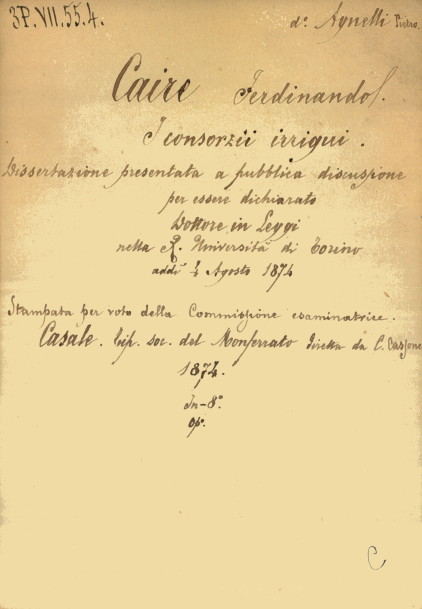 3P.VII.55.4.
d° Agnelli Pietro.
Caire Ferdinando.
I consorzii irrigui.
Dissertazione presentata a pubblica discussione
per essere dichiarato
Dottore in Leggi
nella R. Università di Torino
addì Agosto 1874
Stampata per voto della Commissione esaminatrice.
Casale. Tip. soc. del Monferrato diretta da C. Cassone
1874.
In-8°.
Op.
C